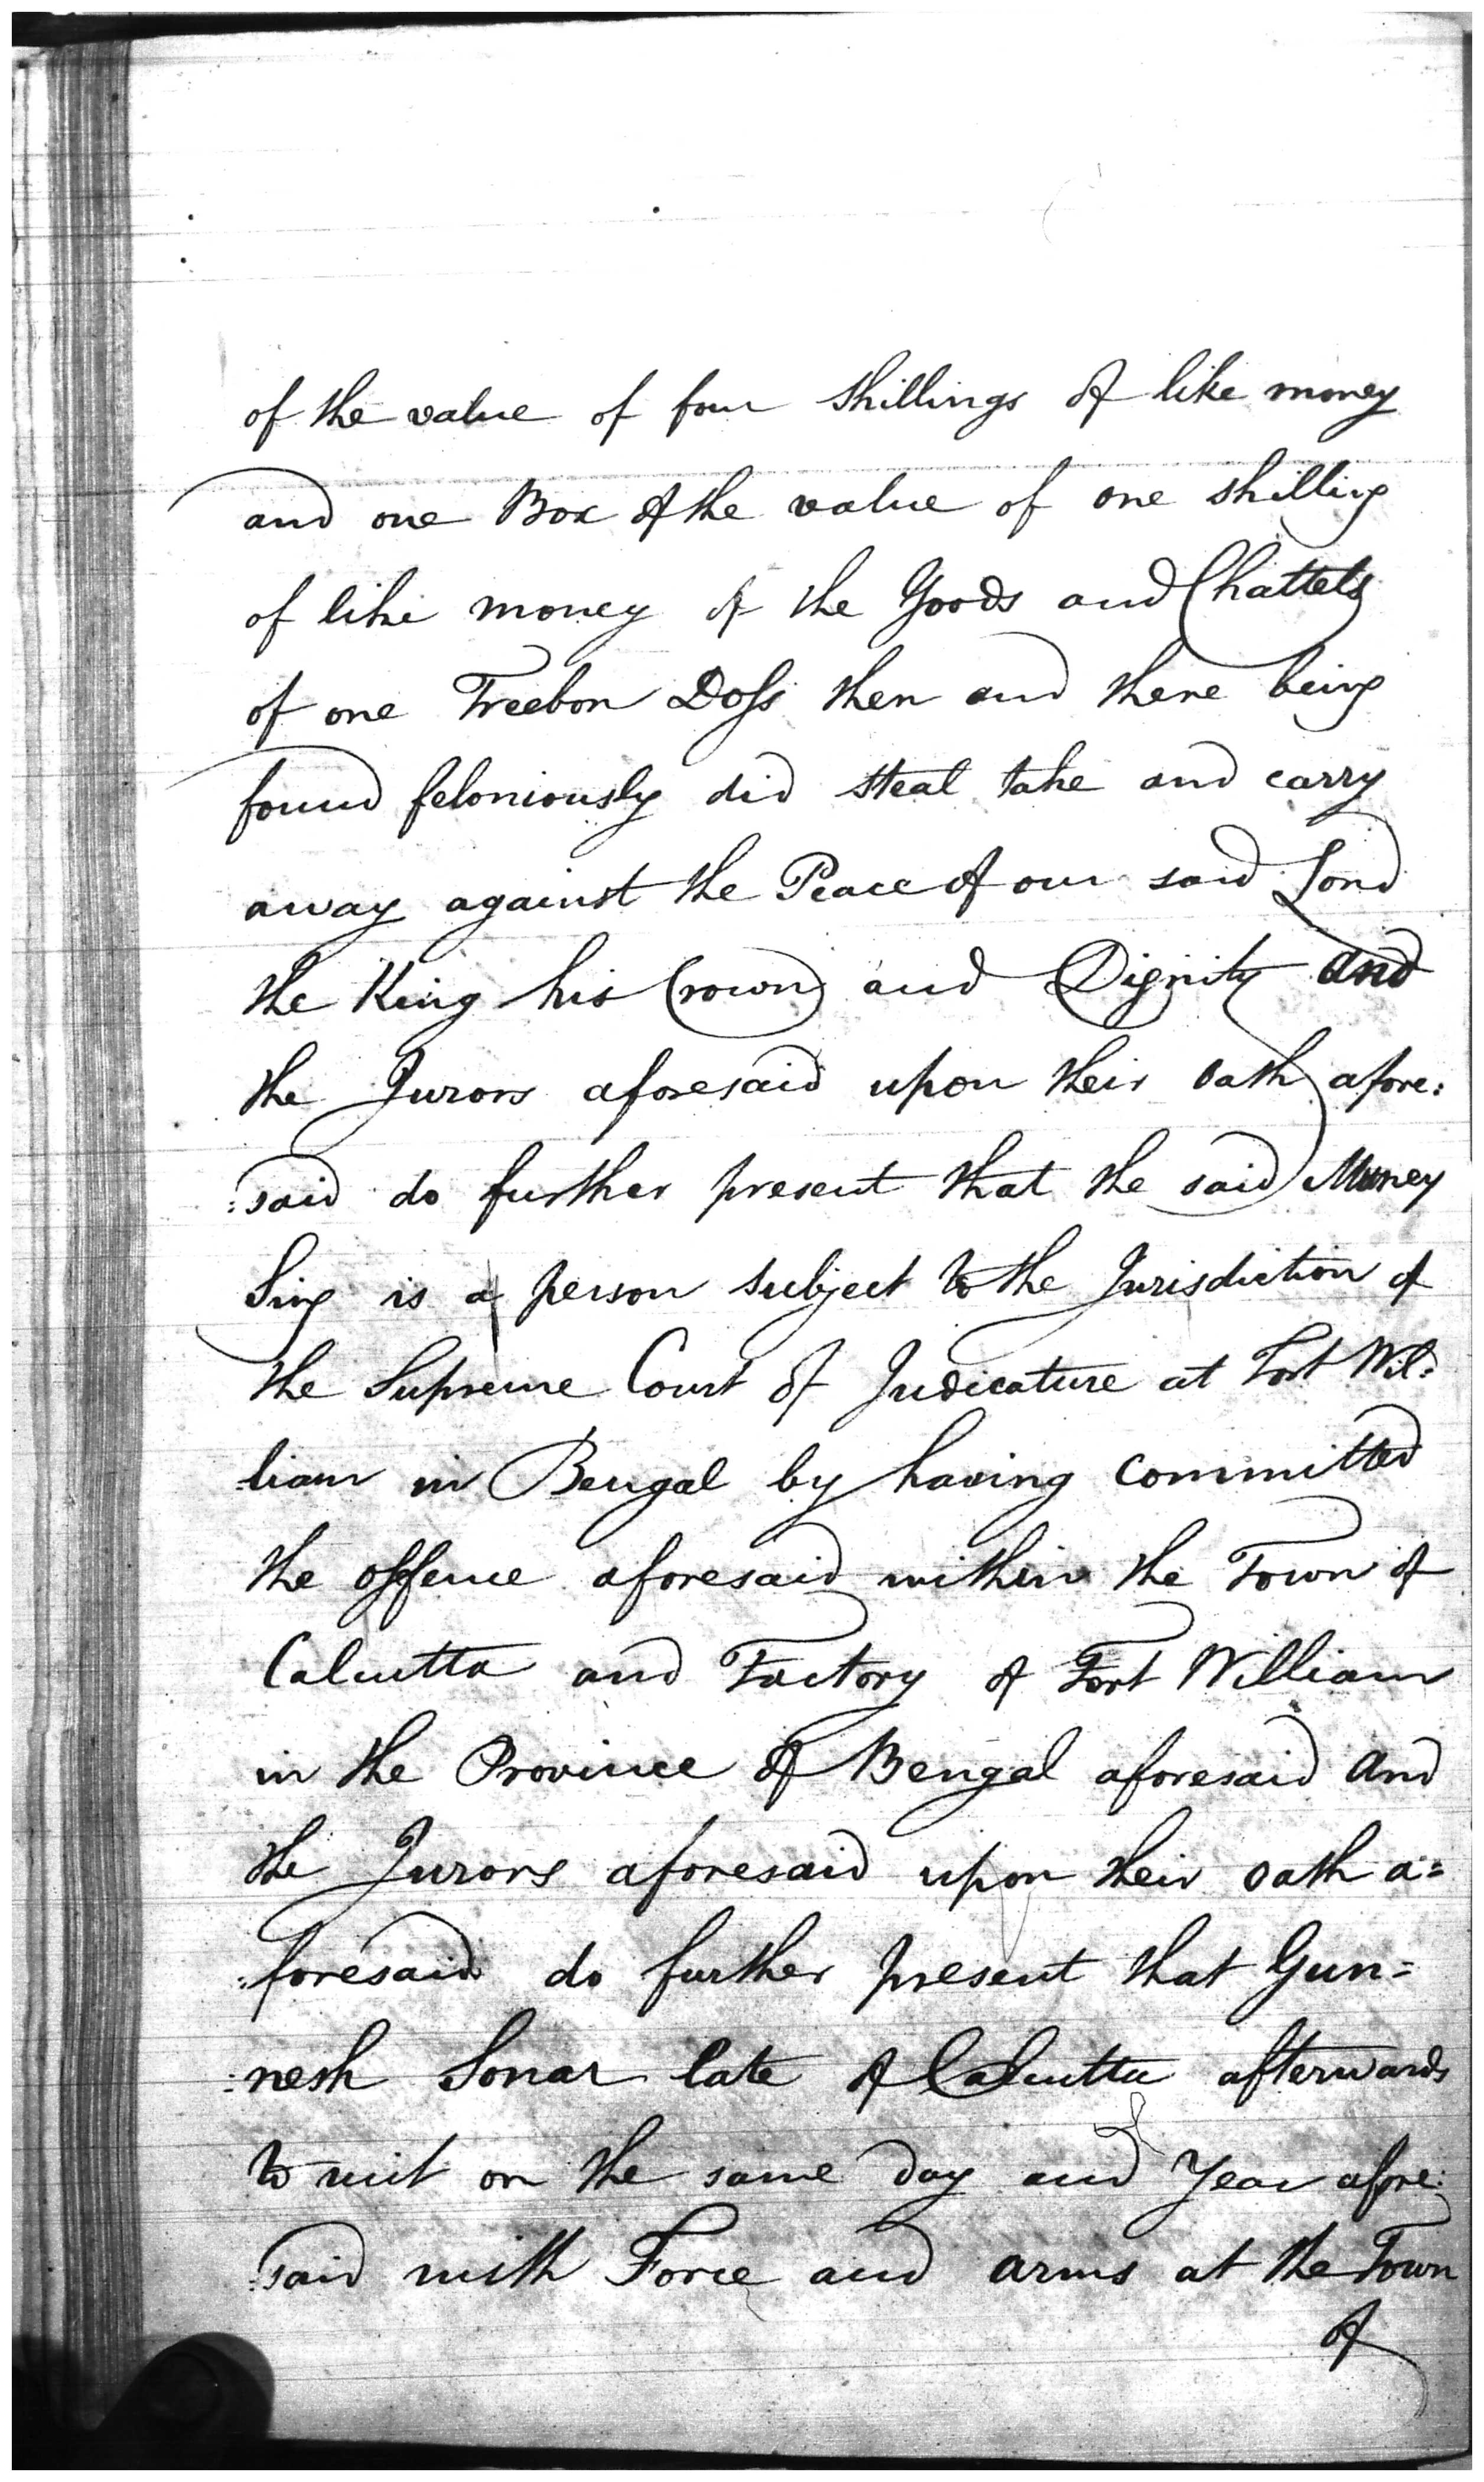 of the value of four shillings of like money
and one Box of the value of one shilling
of like money of the Goods and Chattels
of one Treebon Doss then and there being
found feloniously did steal take and carry
away against the Peace of our said Lord
the King his Crown and Dignity and
the Jurors aforesaid upon their oath afore:
:said do further present that the said Muney
Sing is a person subject to the Jurisdiction of
the Supreme Court of Judicature at Fort Wil:
:liam in Bengal by having committed
the offence aforesaid within the Town of
Calcutta and Factory of Fort William
in the Province of Bengal aforesaid and
the Jurors aforesaid upon their oath a=
:foresaid do further present that Gun=
:nesh Sonar late of Calcutta afterwards
to wit on the same day and Year afore:
:said with Force and arms at the Town
of